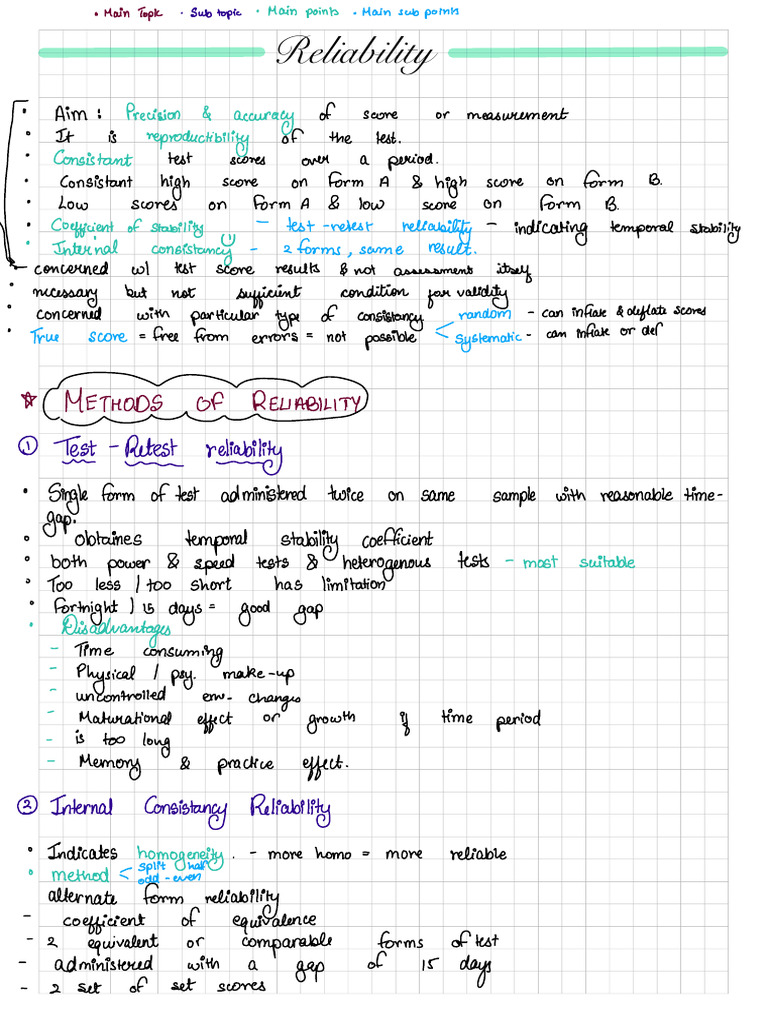 • Main Topic • Sub topic • Main points • Main sub points
Reliability
• Aim : Precision & accuracy of score or measurement
• It is reproductibility of the test.
• Consistant test scores over a period.
• Consistant high score on form A & high score on form B.
• Low scores on form A & low score on form B.
• Coefficient of stability – test-retest reliability – indicating temporal stability
• Internal consistancy – 2 forms, same result.
concerned w/ test score results & not assessment itself
• necessary but not sufficient condition for validity
• concerned with particular type of consistancy
random - can inflate & deflate scores
• True score = free from errors = not possible
systematic - can inflate or def
METHODS OF RELIABILITY
① Test - Retest reliability
• Single form of test administered twice on same sample with reasonable time-
gap.
• obtaines temporal stability coefficient
• both power & speed tests & heterogenous tests - most suitable
• Too less / too short has limitation
• Fortnight / 15 days = good gap
• Disadvantages
- Time consuming
- Physical / psy. make-up
- uncontrolled env- changes
- Maturational effect or growth if time period
- is too long
- Memory & practice effect.
② Internal Consistancy Reliability
• Indicates homogeneity. - more homo = more reliable
• method < split half
odd-even
alternate form reliability
- coefficient of equivalence
- 2 equivalent or comparable forms of test
- administered with a gap of 15 days
- 2 set of set scores